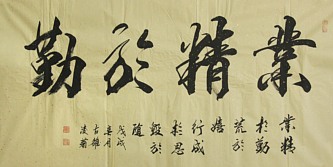 業精於勤
業精
於勤
荒於
嬉
行成
於思
毀於
隨
戊戌